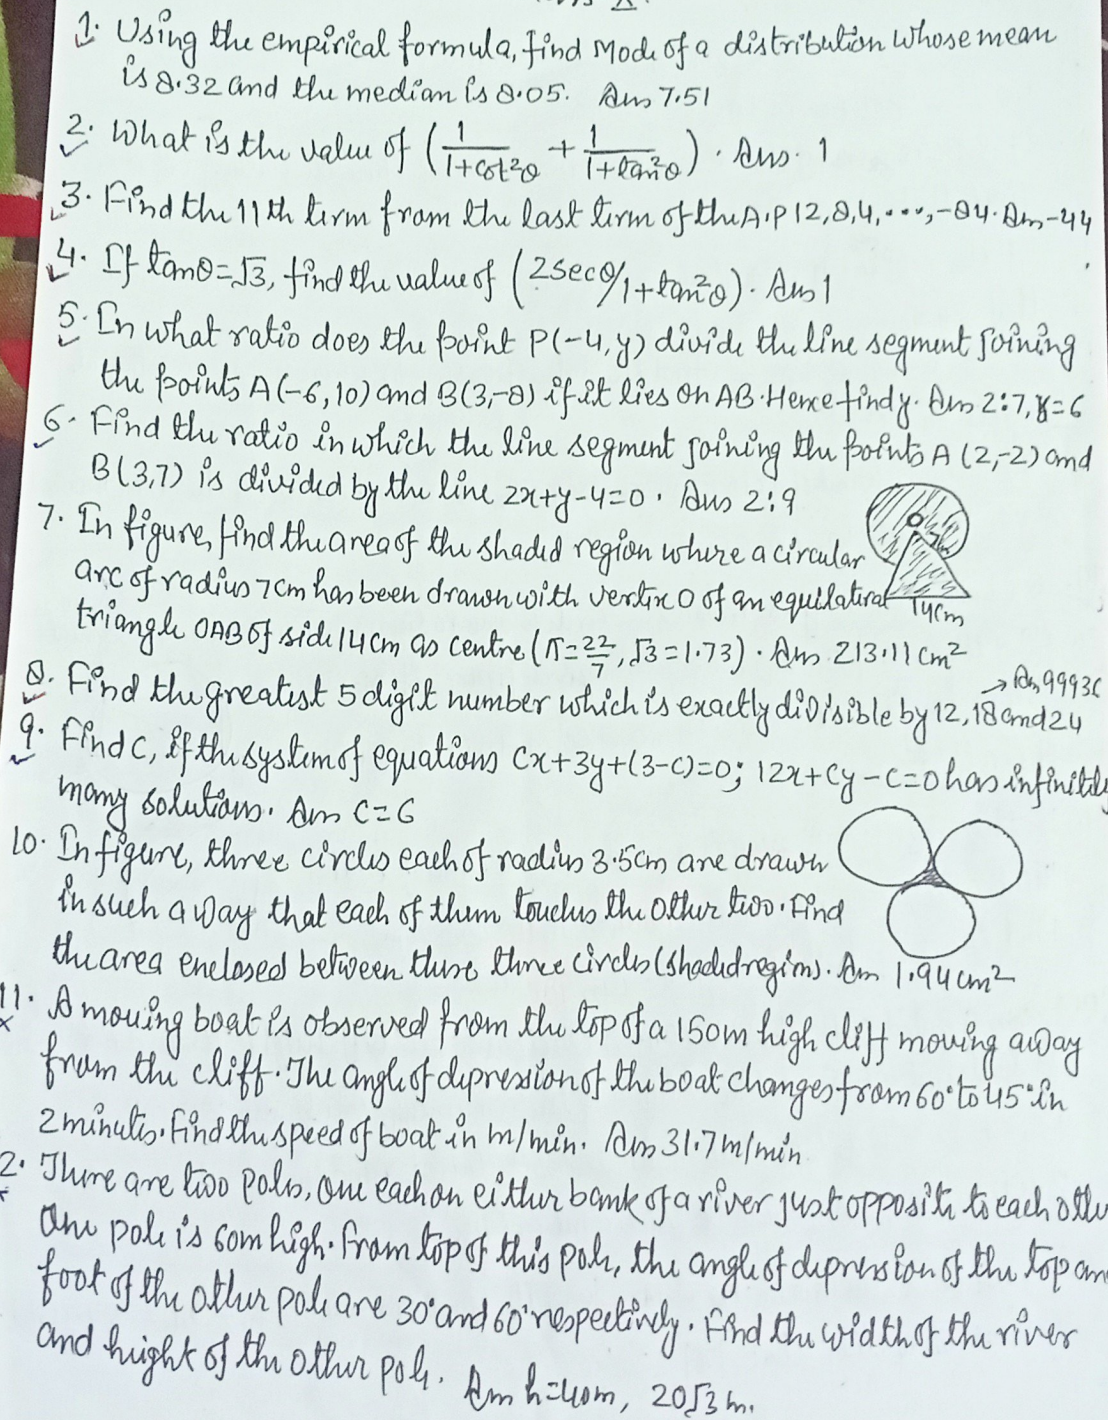 1. Using the empirical formula, find Mode of a distribution whose mean
is 8.32 and the median is 8.05. Ans 7.51
2. What is the value of (1/1+cot²θ + 1/1+tan²θ). Ans. 1
3. Find the 11th term from the last term of the A.P 12,8,4,....,-84. Ans -44
4. If tanθ=√3, find the value of (2secθ/1+tan²θ). Ans 1
5. In what ratio does the point P(-4,y) divide the line segment joining
the points A(-6,10) and B(3,-8) if it lies on AB. Hence find y. Ans 2:7, y=6
6. Find the ratio in which the line segment joining the points A (2,-2) and
B(3,7) is divided by the line 2x+y-4=0. Ans 2:9
7. In figure, find the area of the shaded region where a circular
arc of radius 7cm has been drawn with vertix O of an equilateral
triangle OAB of side 14 cm as centre (π=22/7, √3=1.73). Ans 213.11 cm²
O
14cm
→ Ans 9993
8. Find the greatest 5 digit number which is exactly divisible by 12, 18 and 24
9. Find C, if the system of equations Cx+3y+(3-c)=0; 12x+Cy-C=0 has infinitely
many solutions. Ans C=6
10. In figure, three circles each of radius 3.5cm are drawn
in such a way that each of them touches the other two. Find
the area enclosed between these three circles (shaded regions). Ans 1.94 cm²
11. A moving boat is observed from the top of a 150m high cliff moving away
from the cliff. The angle of depression of the boat changes from 60° to 45° in
2 minutes. Find the speed of boat in m/min. Ans 31.7 m/min
2. There are two poles, one each on either bank of a river just opposite to each othe
One pole is 60m high. From top of this pole, the angle of depression of the top an
foot of the other pole are 30° and 60° respectively. Find the width of the river
and height of the other pole. Ans h=40m, 20√3 m.